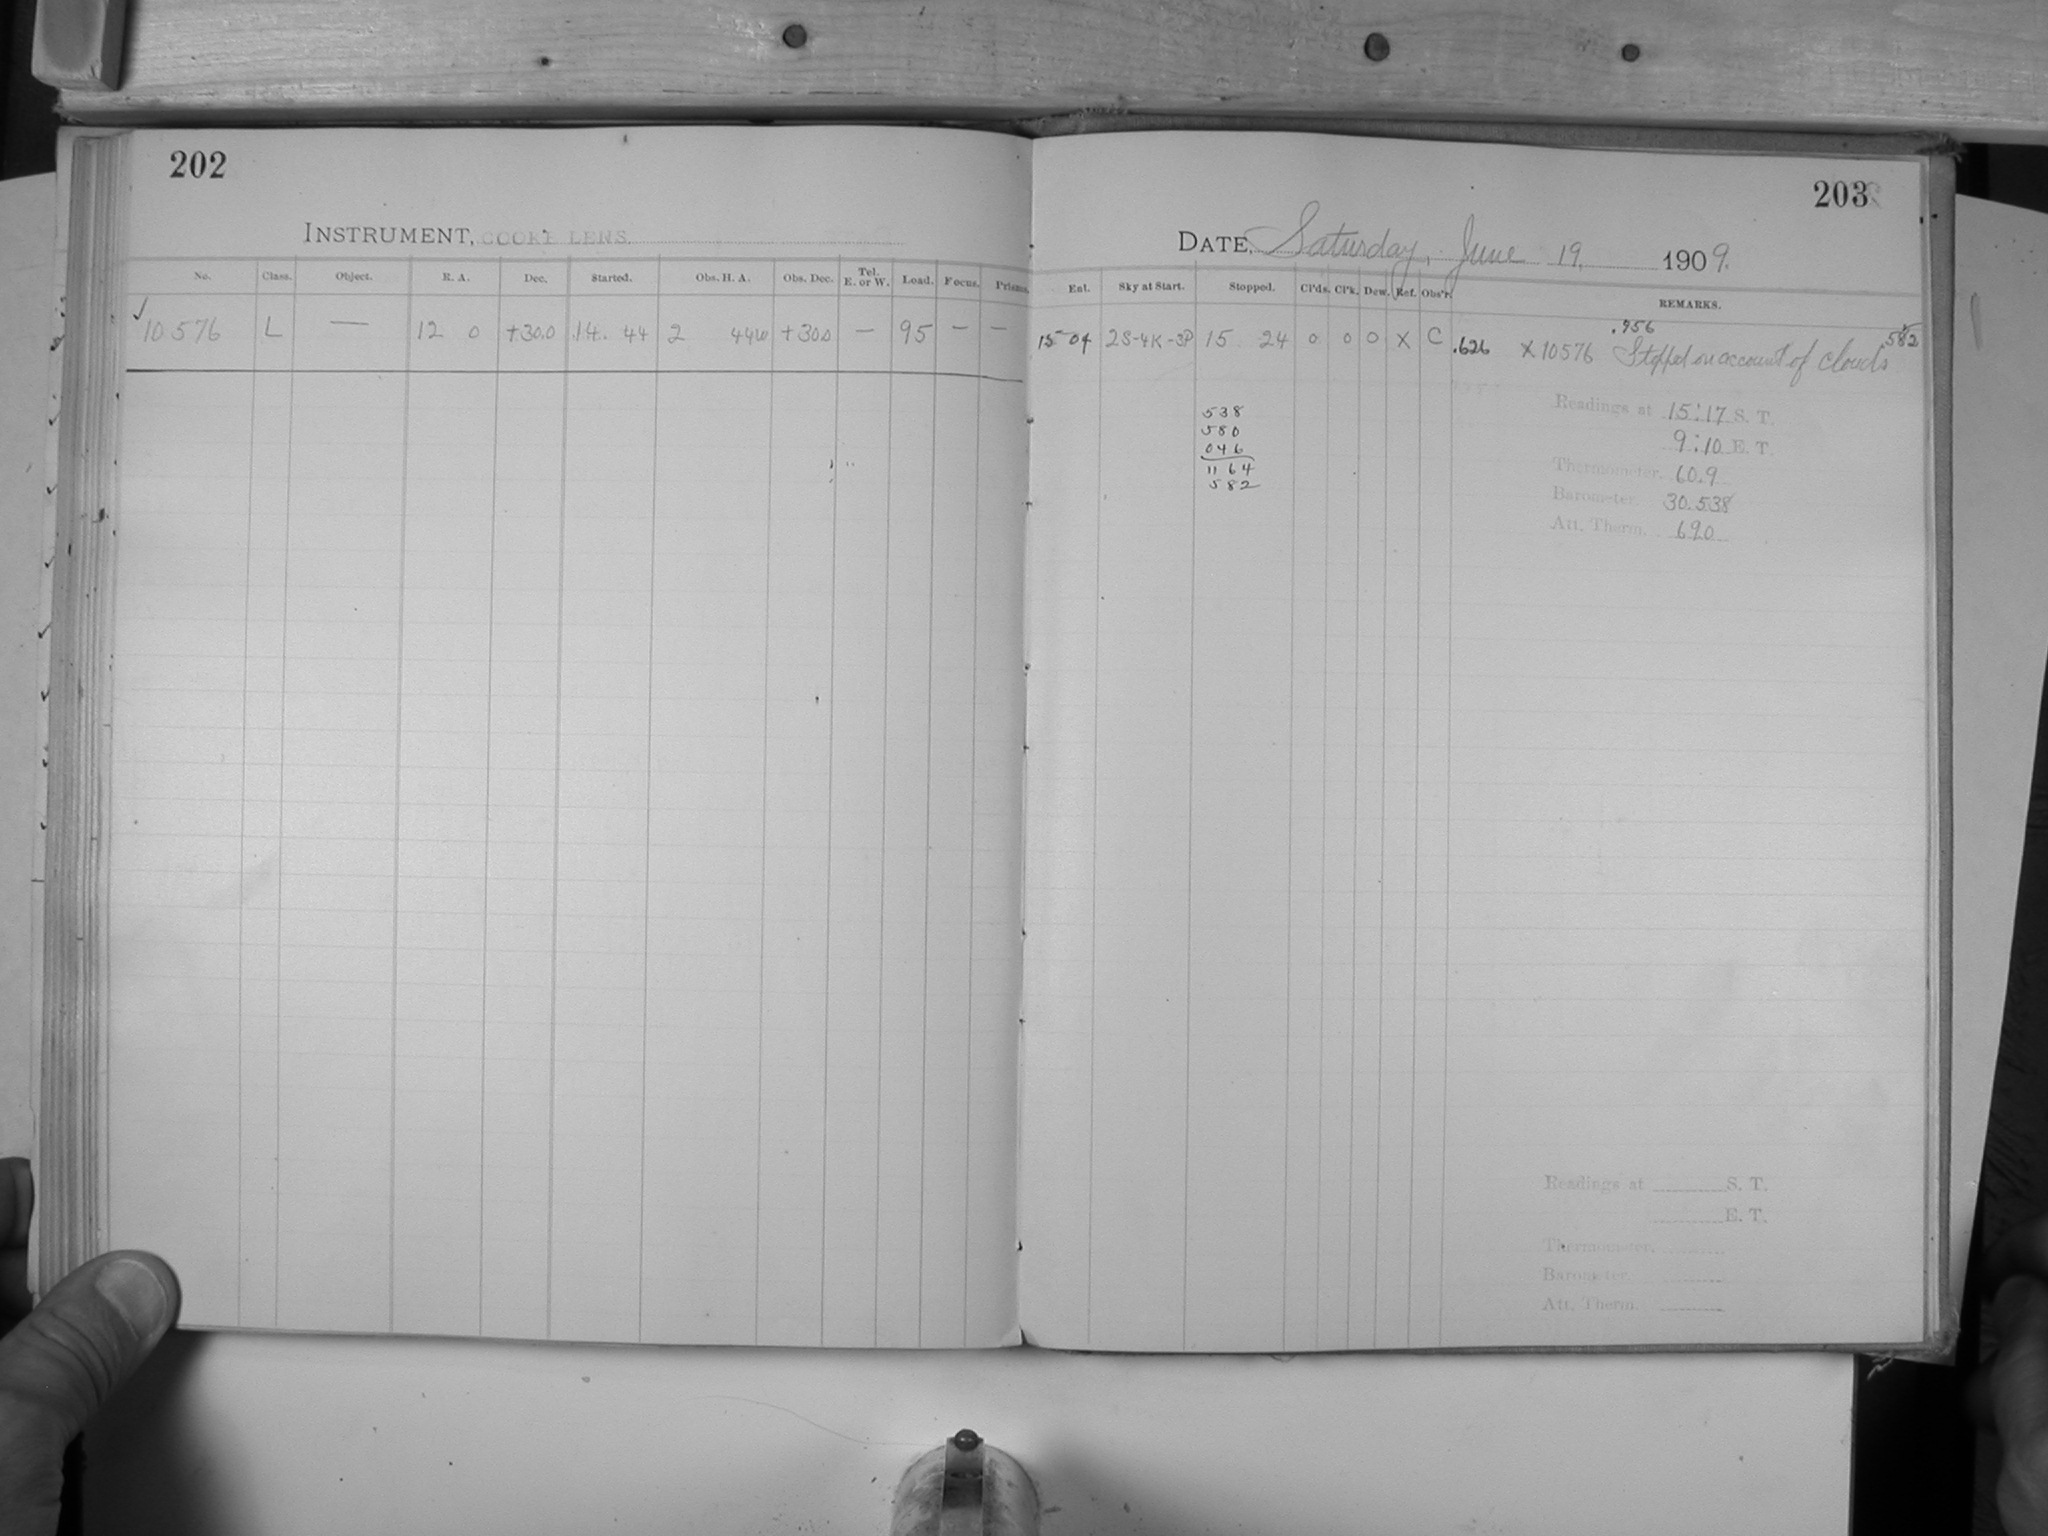 202
INSTRUMENT, COOKE LENS.
No. Class. Object. R. A. Dec. Started. Obs. H. A. Obs. Dec. Tel. E. or W. Load. Focus. Prisms.
✓ 10576 L — 12 0 +30.0 14. 44 2 44W +30.0 — 95 — —
203
DATE, Saturday, June 19, 1909.
Ent. Sky at Start. Stopped. Cl'ds. Cl'k. Dew. Ref. Obs'r. REMARKS.
.956
15 04 2S-4K-3P 15 24 0 0 0 X C .626 X 10576 Stopped on account of clouds 582
538
580
046
1164
582
Readings at 15:17 S. T.
9:10 E. T.
Thermometer. 60.9
Barometer. 30.538
Att. Therm. 69.0
Readings at S. T.
E. T.
Thermometer.
Barometer.
Att. Therm.